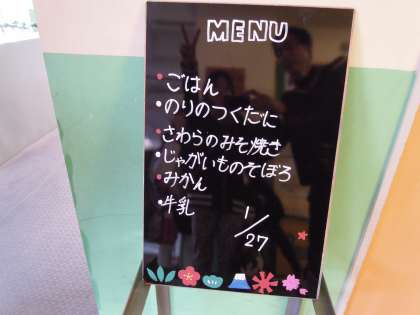 MENU
・ごはん
・のりのつくだに
・さわらのみそ焼き
・じゃがいものそぼろ
・みかん
・牛乳
1/27